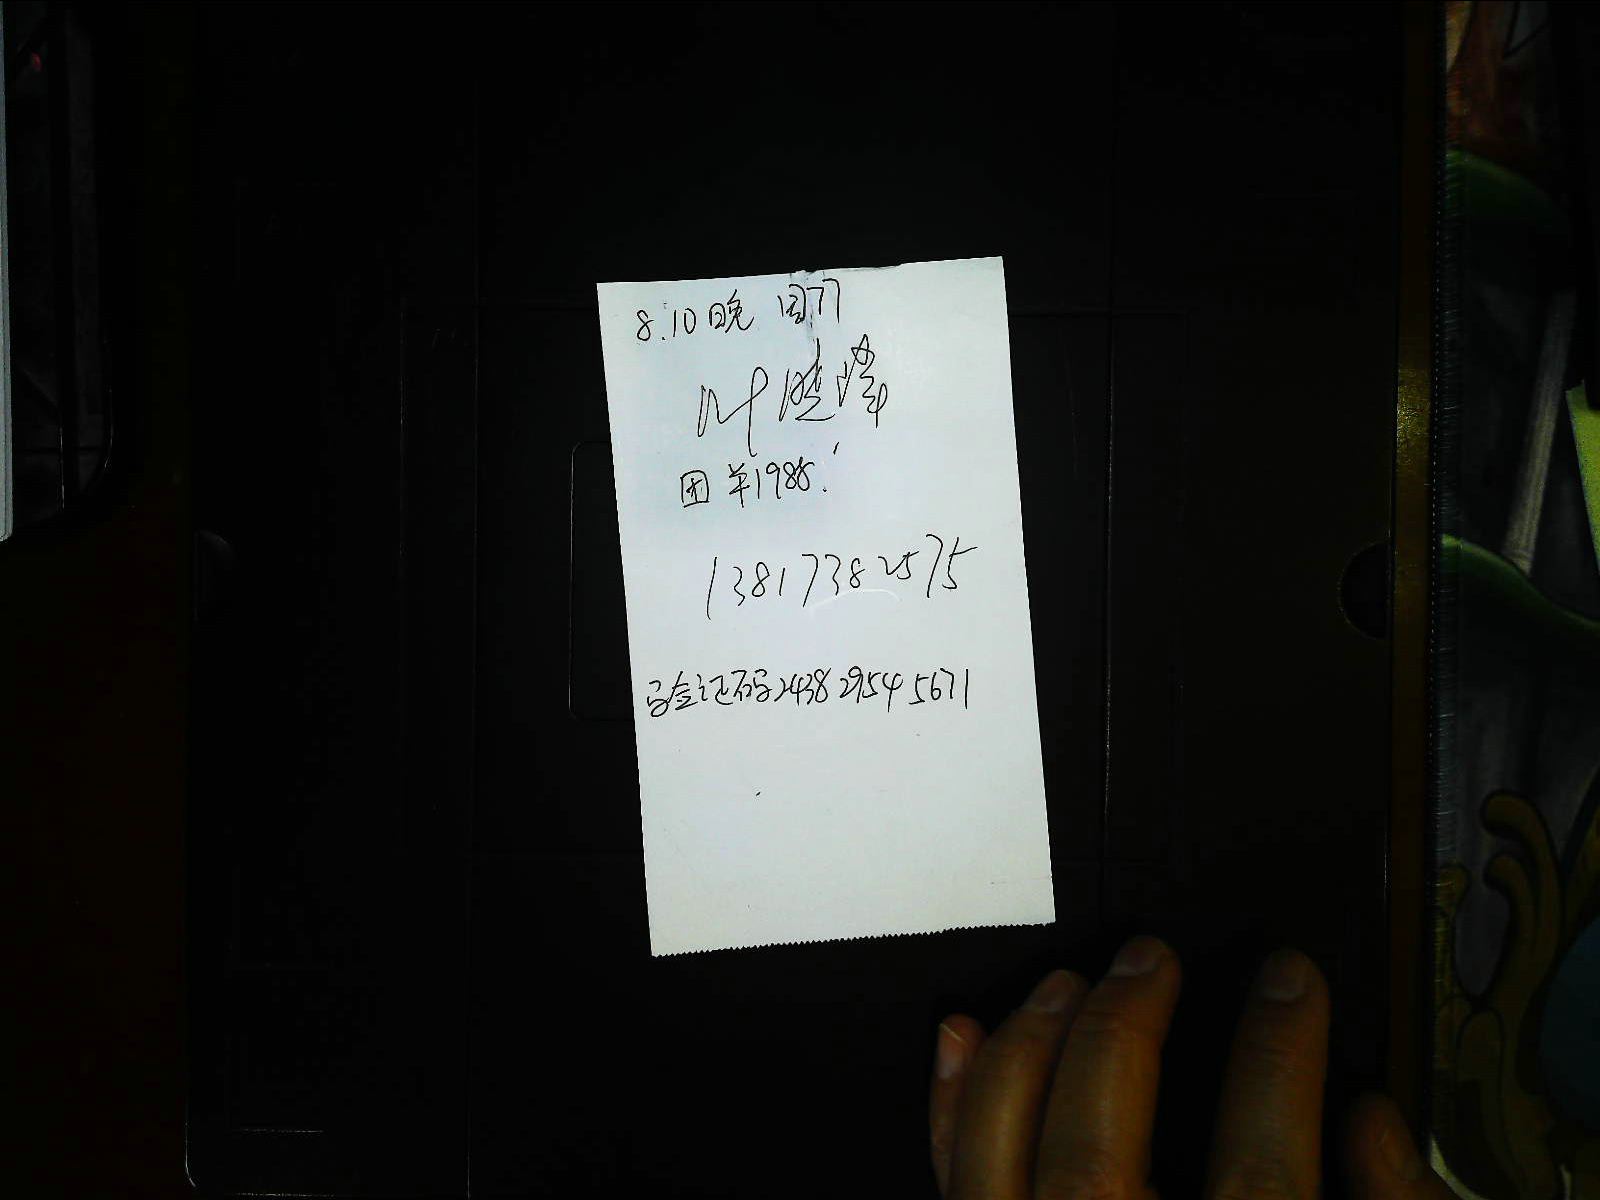 8.10晚 周77
叶晓峰
团 羊1988.
13817382575
验证码2438 2954 5671